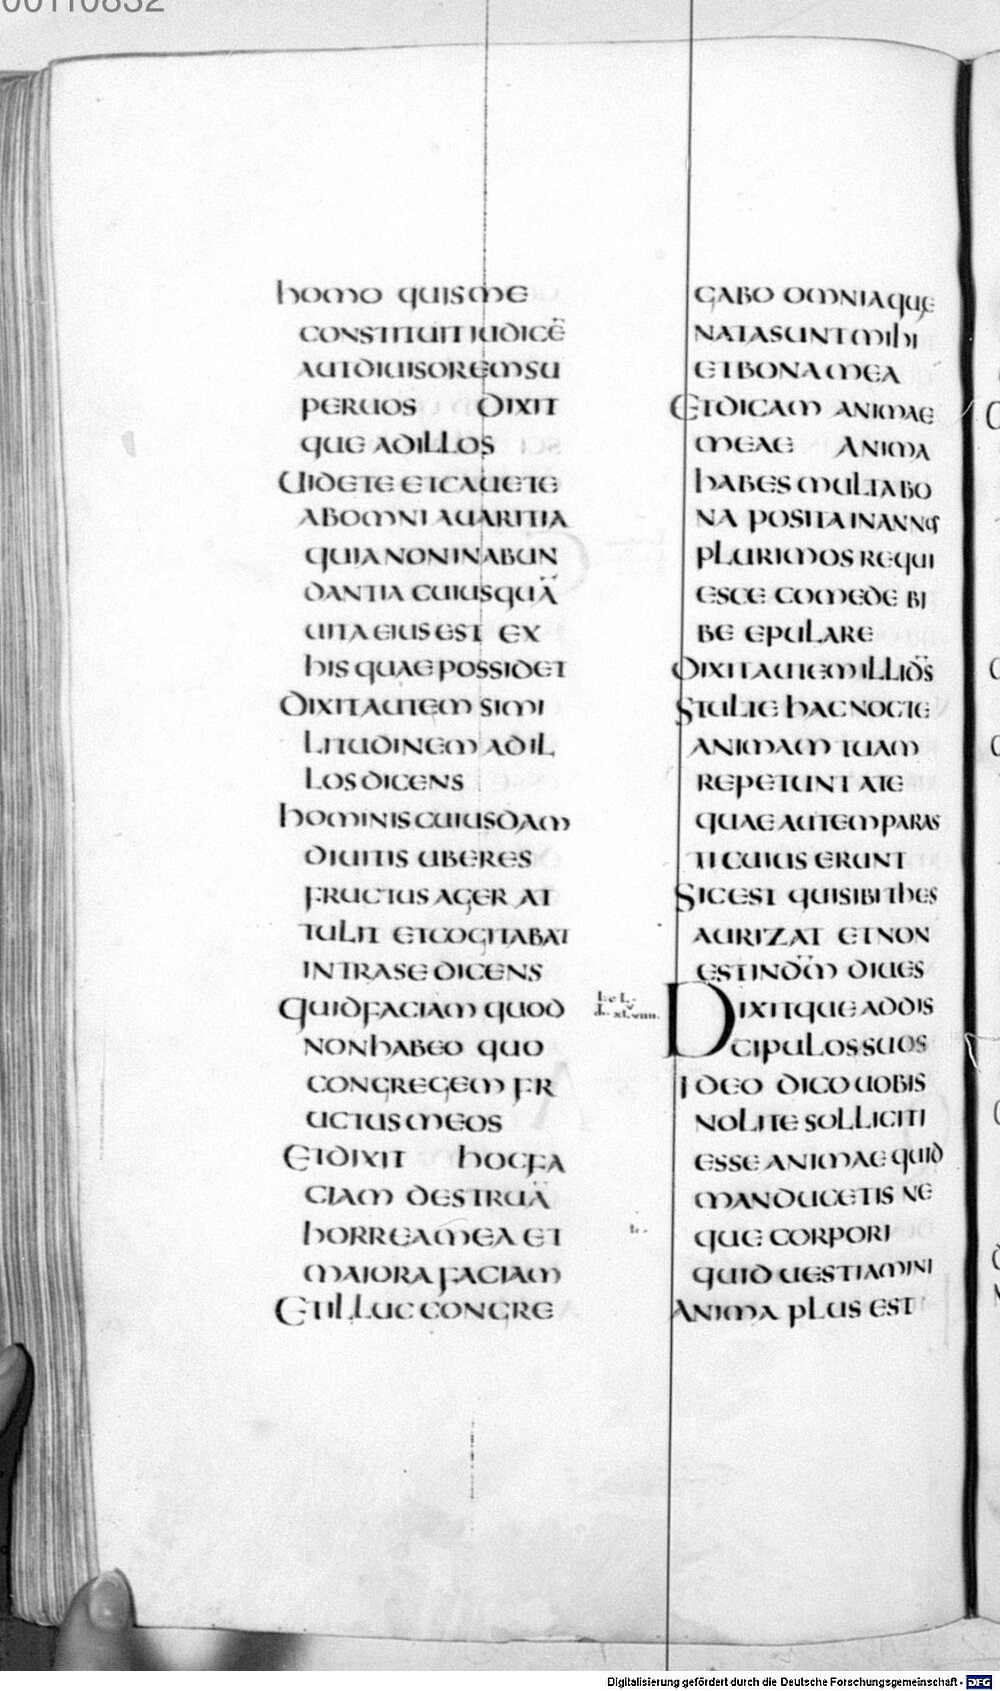 00110832
homo quisme
constituitiudicē
autdiuisoremsu
peruos dixit
que adillos
Uidete etcauete
abomni auaritia
quianoninabun
dantia cuiusquā
uitaeiusest ex
his quaepossidet
dixitautem simi
litudinem adil
losdicens
hominiscuiusdam
diuitis uberes
fructus ager at
tulit etcogitabat
intrase dicens
quidfaciam quod
nonhabeo quo
congregem fr
uctusmeos
Etdixit hocfa
ciam destruā
horreamea et
maiora faciam
Etilluc congre
gabo omniaquę
natasuntmihi
etbonamea
Etdicam animae
meae anima
habes multabo
na positainannos
plurimos requi
esce comede bi
be epulare
dixitautemillids̄
Stulte hacnocte
animam tuam
repetunt ate
quaeautemparas
ti cuius erunt
Sicest quisibithes
aurizat etnon
estindm̄ diues
Dixitqueaddis
cipulossuos
Ideo dicouobis
nolitesolliciti
esseanimaequid
manducetis ne
quecorpori
quiduestiamini
Anima plus est
Digitalisierung gefördert durch die Deutsche Forschungsgemeinschaft - DFG